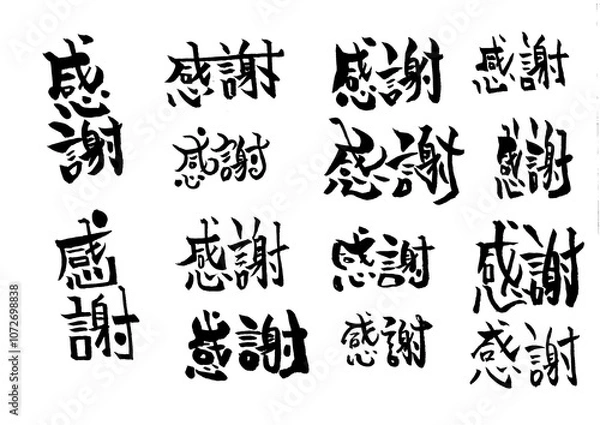 感謝
感謝
感謝
感謝
感謝
感謝
感謝
感謝
感謝
感謝
感謝
感謝
感謝
感謝
Adobe Stock | #1072698838